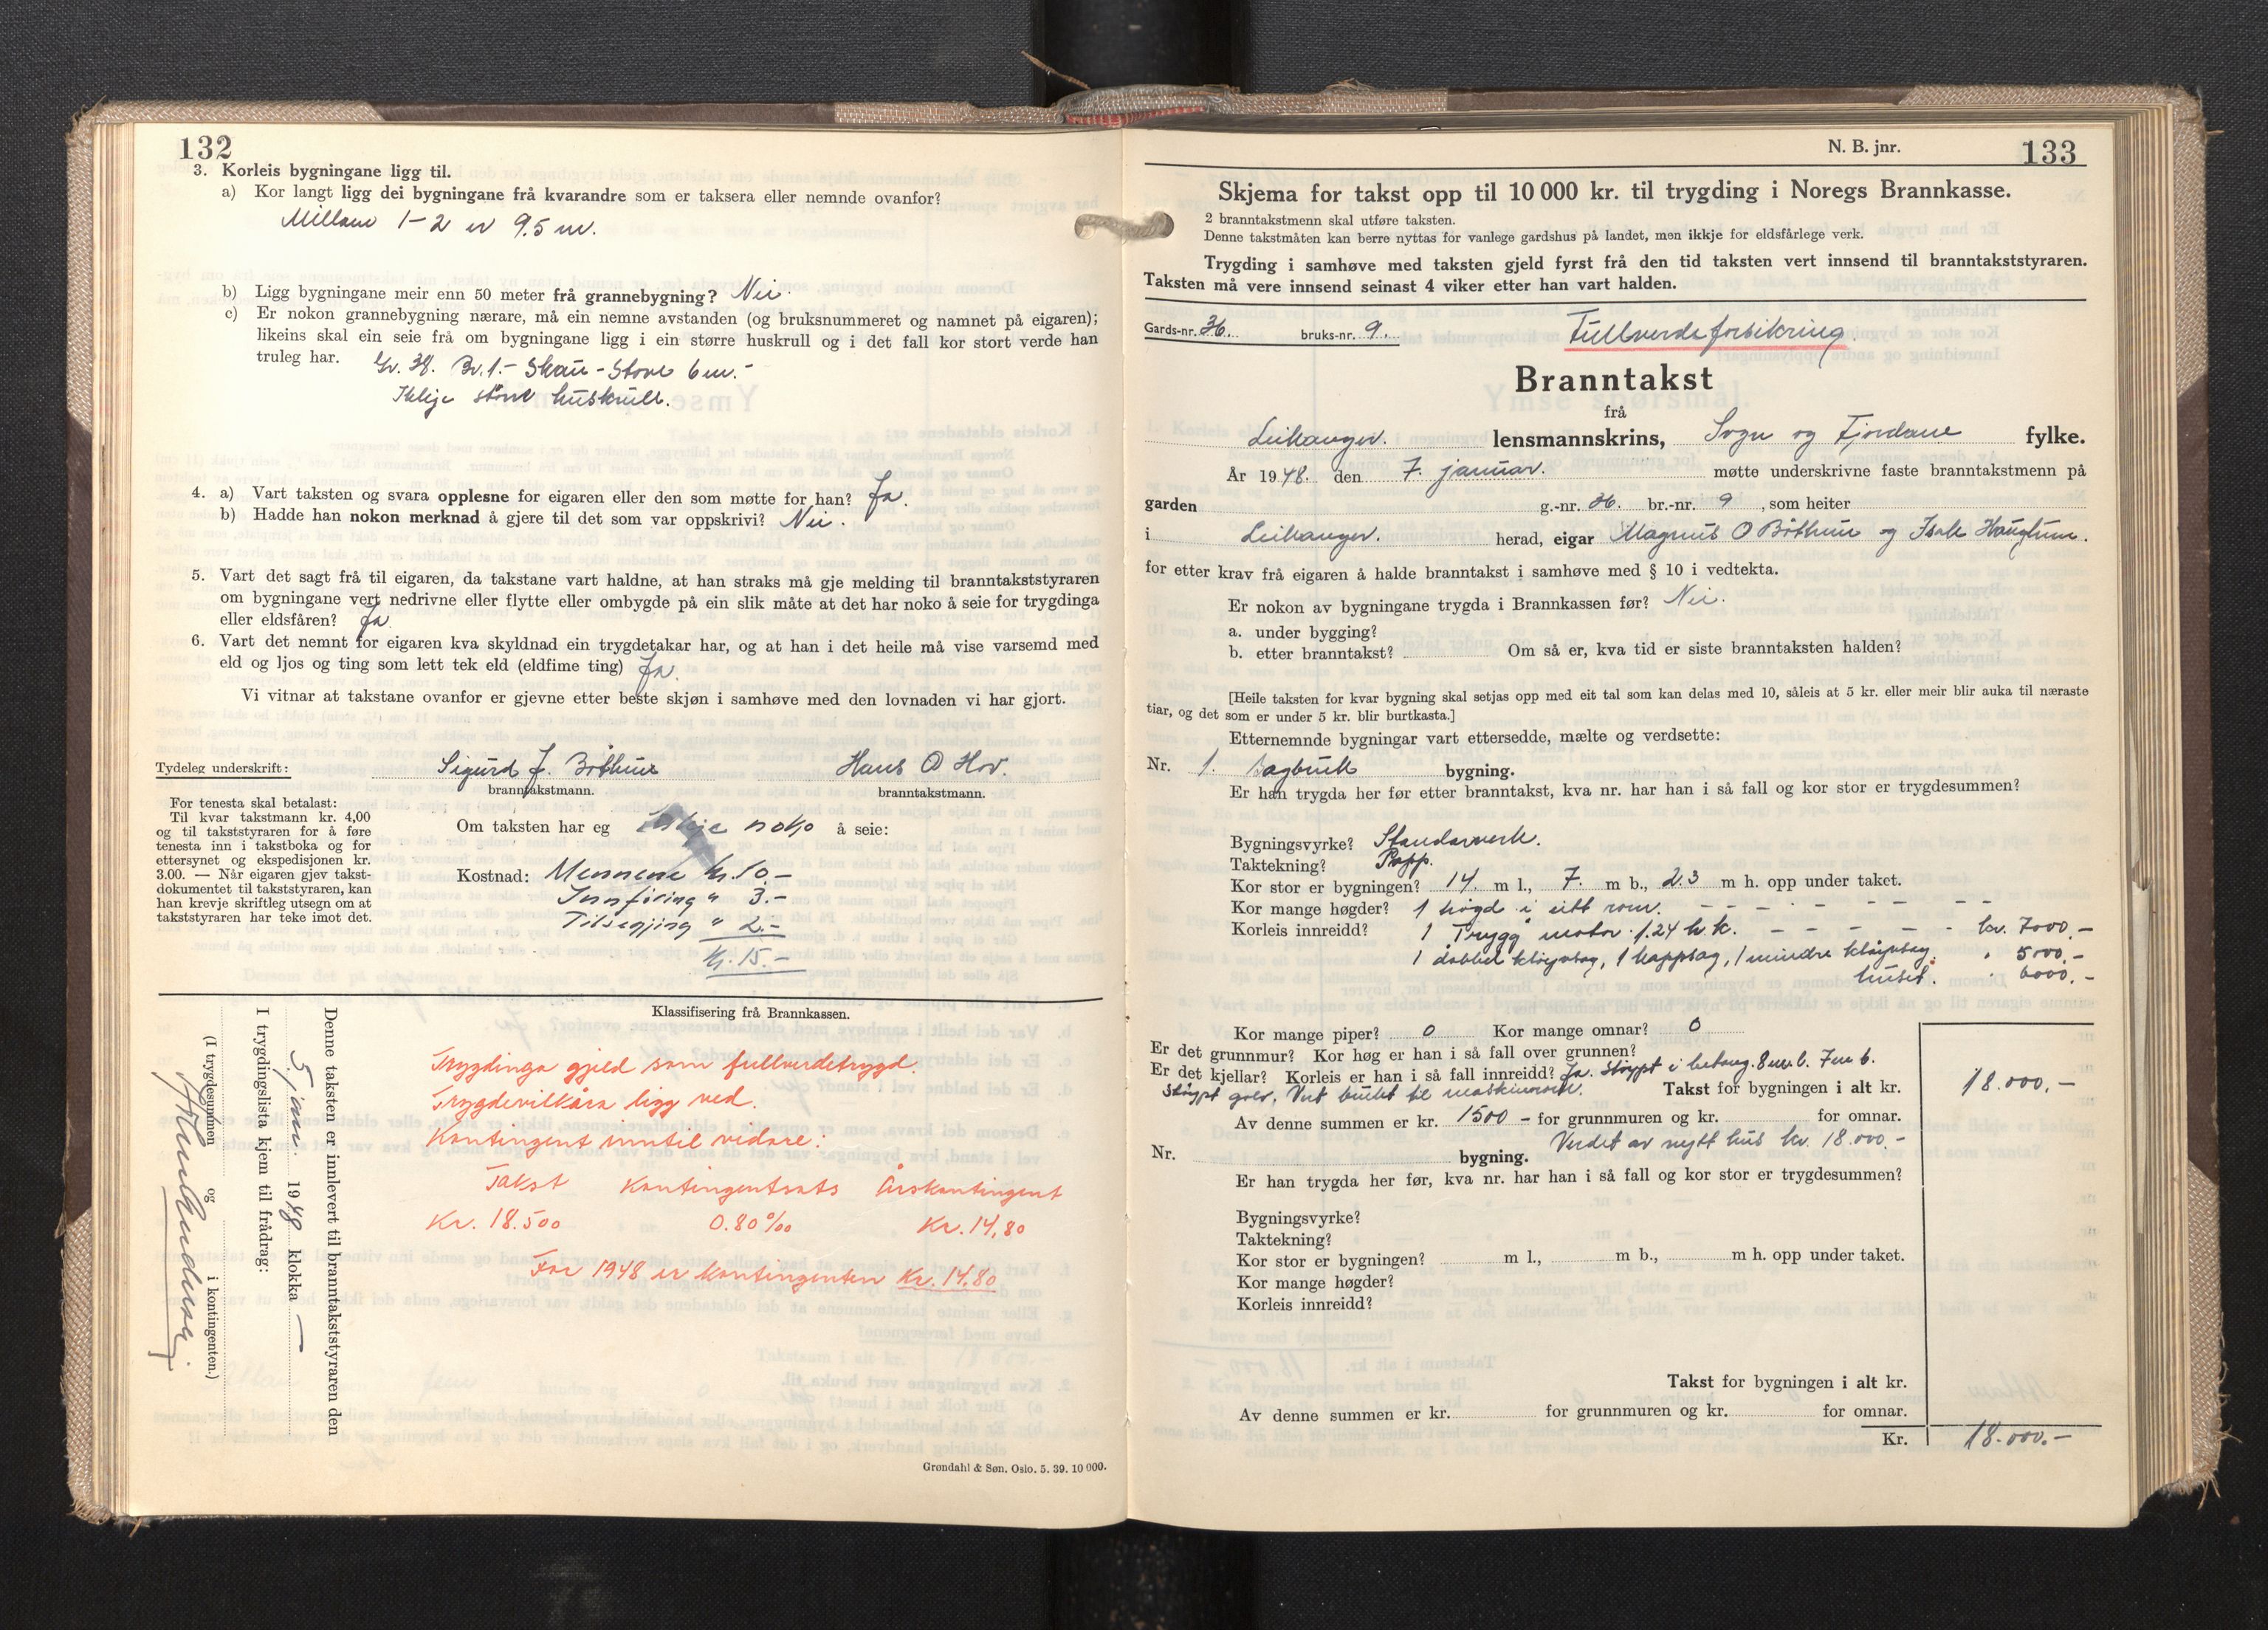 132
3. Korleis bygningane ligg til.
a) Kor langt ligg dei bygningane frå kvarandre som er taksera eller nemnde ovanfor?
Millom 1-2 er 9.5 m.
b) Ligg bygningane meir enn 50 meter frå grannebygning? Nei.
c) Er nokon grannebygning nærare, må ein nemne avstanden (og bruksnummeret og namnet på eigaren);
likeins skal ein seie frå om bygningane ligg i ein større huskrull og i det fall kor stort verde han
truleg har. Gr. 38. Br. 1. - Skau - Stove 6 m. -
Ikkje større huskrull.
4. a) Vart taksten og svara opplesne for eigaren eller den som møtte for han? Ja.
b) Hadde han nokon merknad å gjere til det som var oppskrivi? Nei.
5. Vart det sagt frå til eigaren, da takstane vart haldne, at han straks må gje melding til branntakststyraren
om bygningane vert nedrivne eller flytte eller ombygde på ein slik måte at det har noko å seie for trygdinga
eller eldsfåren? Ja
6. Vart det nemnt for eigaren kva skyldnad ein trygdetakar har, og at han i det heile må vise varsemd med
eld og ljos og ting som lett tek eld (eldfime ting) Ja.
Vi vitnar at takstane ovanfor er gjevne etter beste skjøn i samhøve med den lovnaden vi har gjort.
Tydeleg underskrift: Sigurd J. Båthun Hans O Hov.
branntakstmann. branntakstmann.
For tenesta skal betalast:
Til kvar takstmann kr. 4,00
og til takststyraren for å føre
tenesta inn i takstboka og for
ettersynet og ekspedisjonen kr.
3.00. — Når eigaren gjev takst-
dokumentet til takststyraren, kan
han krevje skriftleg utsegn om at
takststyraren har teke imot det.
Om taksten har eg ikkje noko å seie:
Kostnad: Mennene kr. 10.-
Innføring " 3.-
Tilsegjing " 2.-
Kr. 15.-
Denne taksten er innlevert til branntakststyraren den
5. juni 1948 klokka —
I trygdingslista kjem til frådrag:
(I trygdesummen og i kontingenten.)
Klassifisering frå Brannkassen.
Trygdinga gjeld som fullverdetrygd.
Trygdevilkåra ligg ved.
Kontingent inntil vidare:
Takst Kontingentsats Årskontingent
Kr. 18.500 0.80 ‰ Kr. 14,80
For 1948 er kontingenten Kr. 14.80
Grøndahl & Søn, Oslo. 5. 39. 10 000.
N. B. jnr. 133
Skjema for takst opp til 10 000 kr. til trygding i Noregs Brannkasse.
2 branntakstmenn skal utføre taksten.
Denne takstmåten kan berre nyttas for vanlege gardshus på landet, men ikkje for eldsfårlege verk.
Trygding i samhøve med taksten gjeld fyrst frå den tid taksten vert innsend til branntakststyraren.
Taksten må vere innsend seinast 4 viker etter han vart halden.
Gards-nr. 36. bruks-nr. 9. Fullverdsforsikring
Branntakst
frå
Leikanger. lensmannskrins, Sogn og Fjordane fylke.
År 1948. den 7. januar. møtte underskrivne faste branntakstmenn på
garden g.-nr. 36. br.-nr. 9, som heiter
i Leikanger. herad, eigar Magnus O Båthun og Isak Hauglum.
for etter krav frå eigaren å halde branntakst i samhøve med § 10 i vedtekta.
Er nokon av bygningane trygda i Brannkassen før? Nei.
a. under bygging?
b. etter branntakst? Om så er, kva tid er siste branntaksten halden?
[Heile taksten for kvar bygning skal setjas opp med eit tal som kan delas med 10, såleis at 5 kr. eller meir blir auka til næraste
tiar, og det som er under 5 kr. blir burtkasta.]
Etternemnde bygningar vart ettersedde, mælte og verdsette:
Nr. 1. Sagbruk bygning.
Er han trygda her før etter branntakst, kva nr. har han i så fall og kor stor er trygdesummen?
Bygningsvyrke? Standarverk.
Taktekning? Papp.
Kor stor er bygningen? 14. m l., 7. m b., 2.3 m h. opp under taket.
Kor mange høgder? 1 høgd i eitt rom.
Korleis innreidd? 1 "Trygg" motor 1.24 h.k. - - - - - kr. 7000.-
1 dobbel kløyvsag, 1 kappsag, 1 mindre kløyvsag. " 5000.-
huset. " 6000.-
Kor mange piper? 0 Kor mange omnar? 0
Er det grunnmur? Kor høg er han i så fall over grunnen?
Er det kjellar? Korleis er han i så fall innreidd? Ja. Støypt i betong. 8 m l. 7 m b.
Støypt golv. Vert brukt til maskinrom. Takst for bygningen i alt kr. 18.000.-
Av denne summen er kr. 1500 - for grunnmuren og kr. for omnar.
Verdet av nytt hus kr. 18.000.-
Nr. bygning.
Er han trygda her før, kva nr. har han i så fall og kor stor er trygdesummen?
Bygningsvyrke?
Taktekning?
Kor stor er bygningen? m l., m b., m h. opp under taket.
Kor mange høgder?
Korleis innreidd?
Takst for bygningen i alt kr.
Av denne summen er kr. for grunnmuren og kr. for omnar.
Kr. 18.000.-